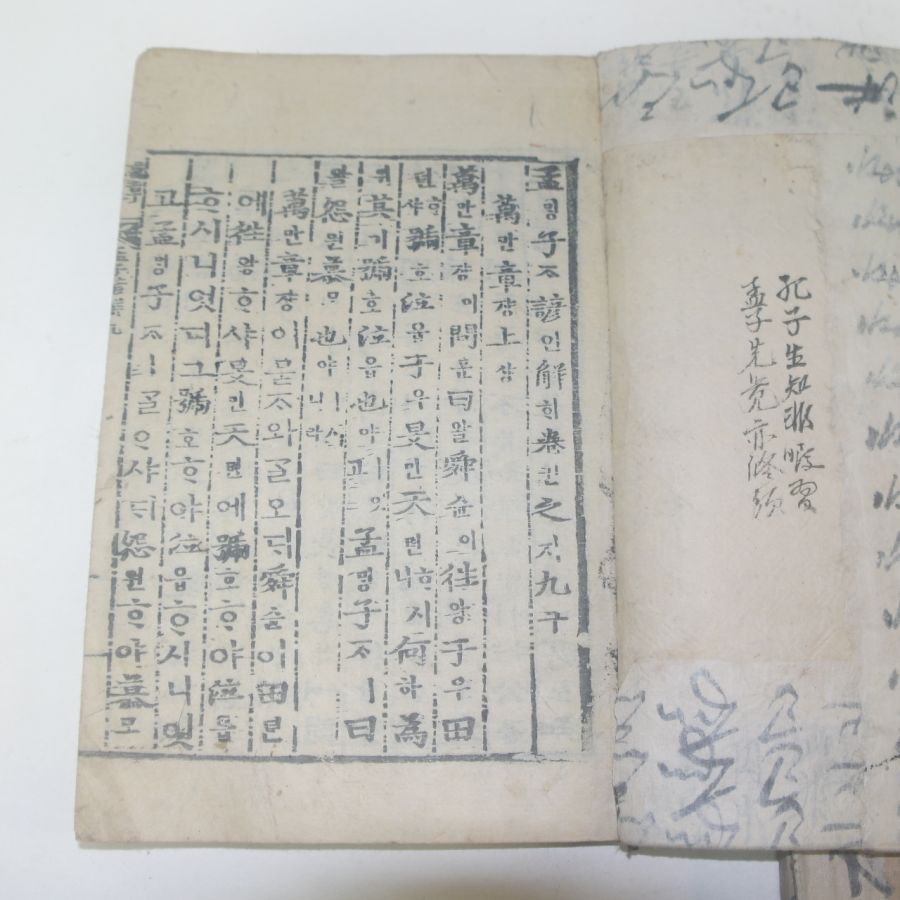 孔子生知非暇習
孟子先覺亦修須
孟ᄆᆡᆼ子ᄌᆞ諺언解ᄒᆡ卷권之지九구
萬만章쟝上샹
萬만章쟝이問문曰왈舜슌이往왕于우田
뎐ᄒᆞ샤號호泣읍于우旻민天텬ᄒᆞ시니何하爲
위其기號호泣읍也야ㅣ잇고孟ᄆᆡᆼ子ᄌᆞㅣ曰
왈怨원慕모也야ㅣ시니라
萬만章쟝이묻ᄌᆞ와ᄀᆞᆯ오ᄃᆡ舜슌이田뎐
애往왕ᄒᆞ샤旻민天텬에號호ᄒᆞ야泣읍
ᄒᆞ시니엇디그號호ᄒᆞ야泣읍ᄒᆞ시니잇
고孟ᄆᆡᆼ子ᄌᆞㅣᄀᆞᆯᄋᆞ샤ᄃᆡ怨원ᄒᆞ야慕모